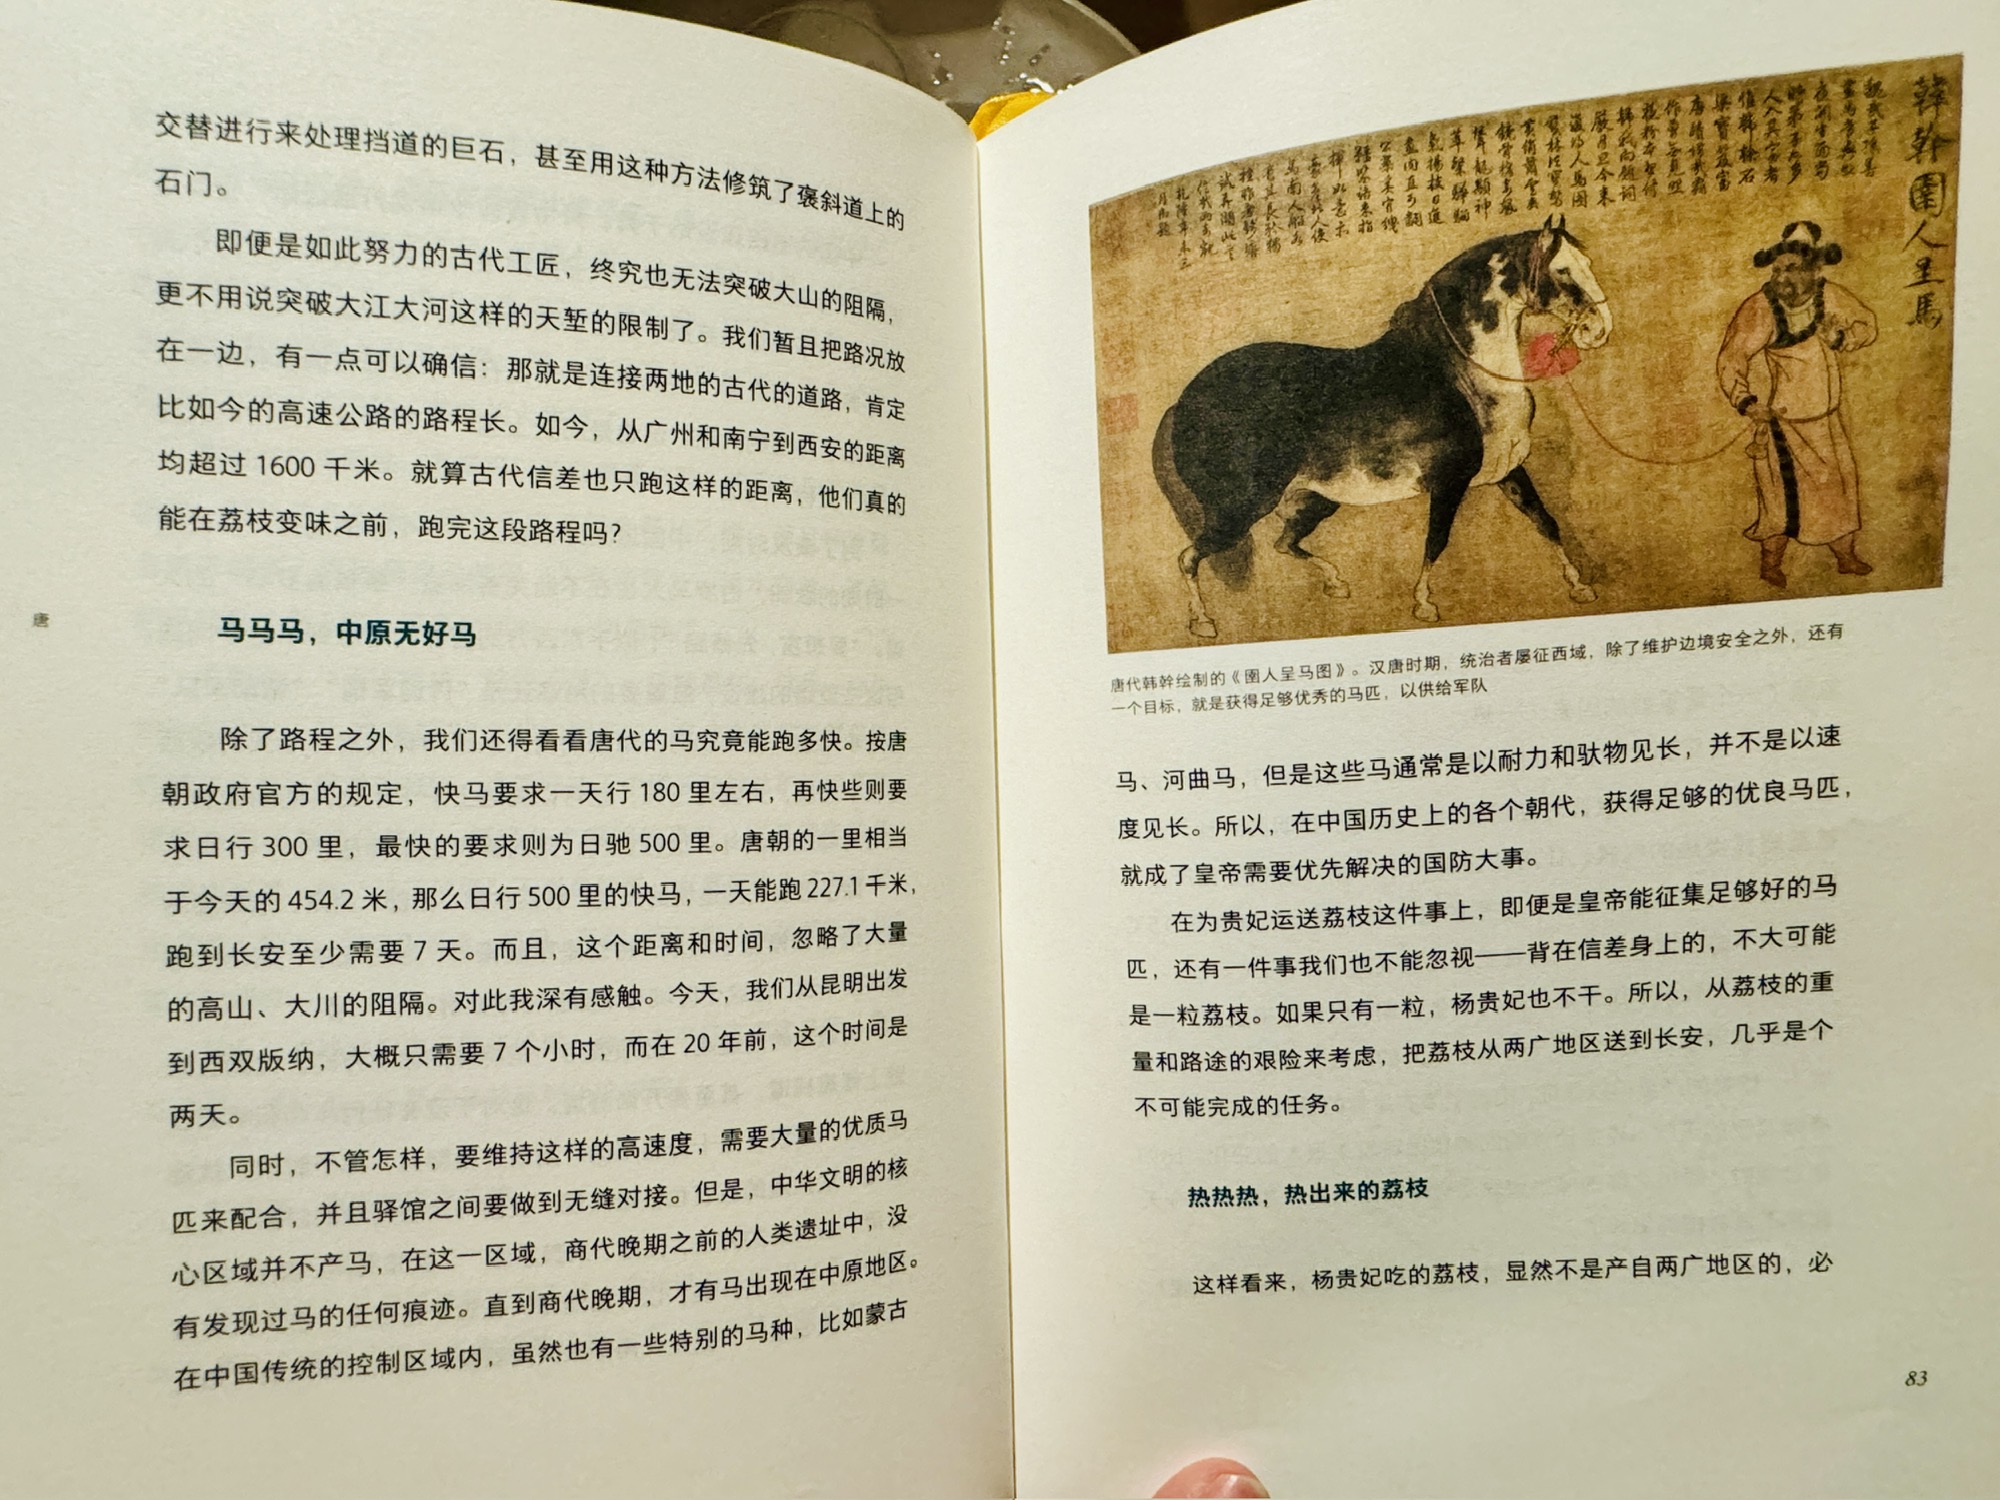 交替进行来处理挡道的巨石，甚至用这种方法修筑了褒斜道上的
石门。
即便是如此努力的古代工匠，终究也无法突破大山的阻隔，
更不用说突破大江大河这样的天堑的限制了。我们暂且把路况放
在一边，有一点可以确信：那就是连接两地的古代的道路，肯定
比如今的高速公路的路程长。如今，从广州和南宁到西安的距离
均超过 1600 千米。就算古代信差也只跑这样的距离，他们真的
能在荔枝变味之前，跑完这段路程吗？
唐
马马马，中原无好马
除了路程之外，我们还得看看唐代的马究竟能跑多快。按唐
朝政府官方的规定，快马要求一天行 180 里左右，再快些则要
求日行 300 里，最快的要求则为日驰 500 里。唐朝的一里相当
于今天的 454.2 米，那么日行 500 里的快马，一天能跑 227.1 千米，
跑到长安至少需要 7 天。而且，这个距离和时间，忽略了大量
的高山、大川的阻隔。对此我深有感触。今天，我们从昆明出发
到西双版纳，大概只需要 7 个小时，而在 20 年前，这个时间是
两天。
同时，不管怎样，要维持这样的高速度，需要大量的优质马
匹来配合，并且驿馆之间要做到无缝对接。但是，中华文明的核
心区域并不产马，在这一区域，商代晚期之前的人类遗址中，没
有发现过马的任何痕迹。直到商代晚期，才有马出现在中原地区。
在中国传统的控制区域内，虽然也有一些特别的马种，比如蒙古
韓幹圉人呈馬
唐代韩幹绘制的《圉人呈马图》。汉唐时期，统治者屡征西域，除了维护边境安全之外，还有
一个目标，就是获得足够优秀的马匹，以供给军队
马、河曲马，但是这些马通常是以耐力和驮物见长，并不是以速
度见长。所以，在中国历史上的各个朝代，获得足够的优良马匹，
就成了皇帝需要优先解决的国防大事。
在为贵妃运送荔枝这件事上，即便是皇帝能征集足够好的马
匹，还有一件事我们也不能忽视——背在信差身上的，不大可能
是一粒荔枝。如果只有一粒，杨贵妃也不干。所以，从荔枝的重
量和路途的艰险来考虑，把荔枝从两广地区送到长安，几乎是个
不可能完成的任务。
热热热，热出来的荔枝
这样看来，杨贵妃吃的荔枝，显然不是产自两广地区的，必
83